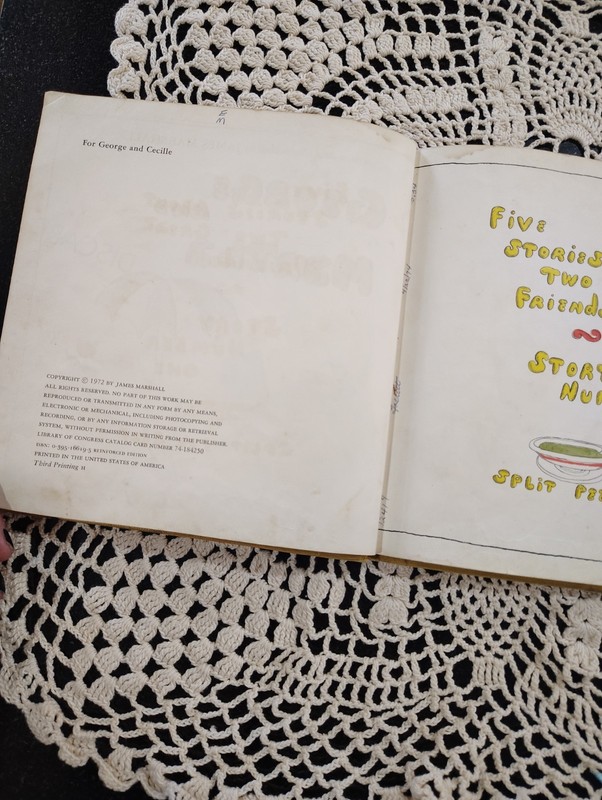 E
M
For George and Cecille
COPYRIGHT © 1972 BY JAMES MARSHALL
ALL RIGHTS RESERVED. NO PART OF THIS WORK MAY BE
REPRODUCED OR TRANSMITTED IN ANY FORM BY ANY MEANS,
ELECTRONIC OR MECHANICAL, INCLUDING PHOTOCOPYING AND
RECORDING, OR BY ANY INFORMATION STORAGE OR RETRIEVAL
SYSTEM, WITHOUT PERMISSION IN WRITING FROM THE PUBLISHER.
LIBRARY OF CONGRESS CATALOG CARD NUMBER 74-184250
ISBN: 0-395-16619-5 REINFORCED EDITION
PRINTED IN THE UNITED STATES OF AMERICA
Third Printing H
FIVE
STORIES
TWO
FRIENDS
STORY
NU
SPLIT PE